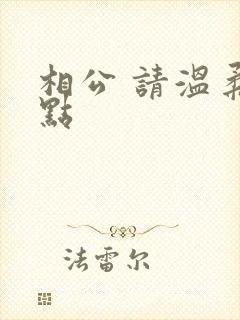 相公 請溫柔
點
法雷尔